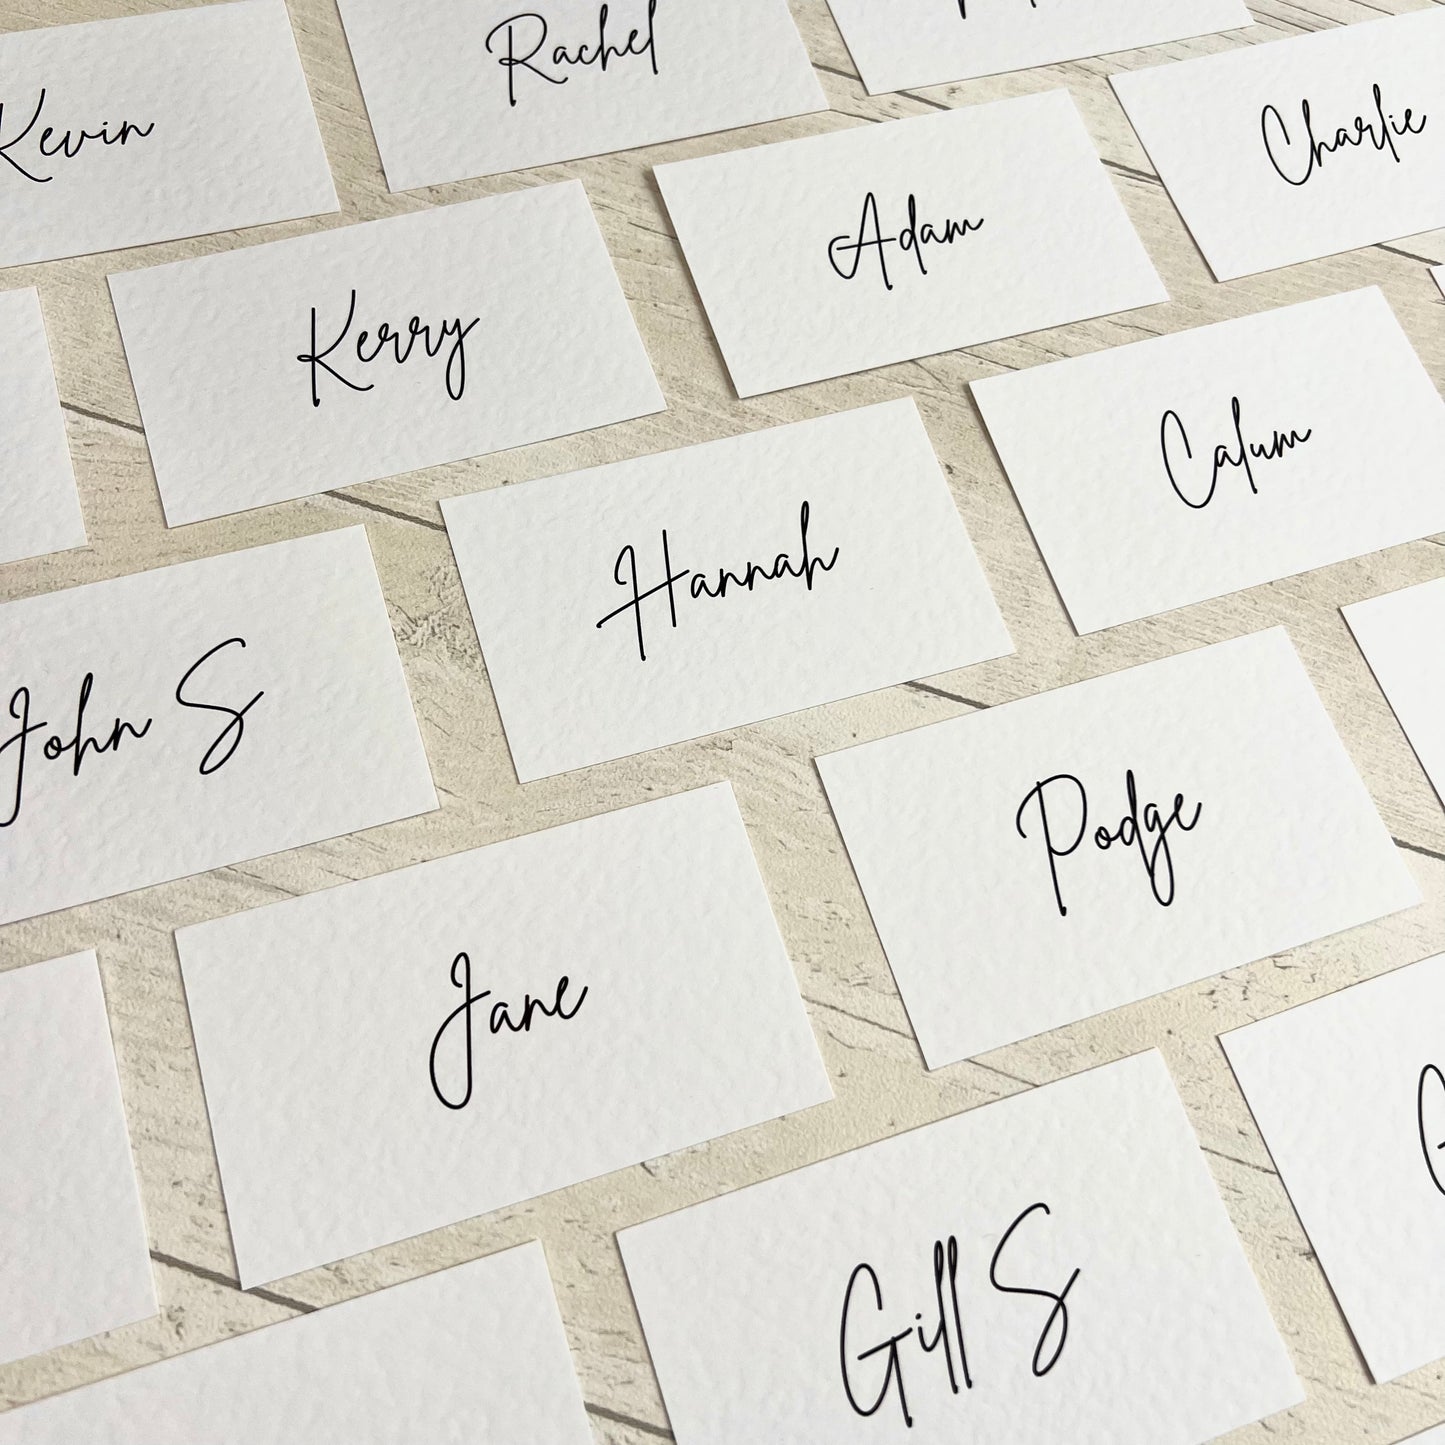 Rachel
Kevin
Charlie
Adam
Kerry
Calum
Hannah
John S
Podge
Jane
Gill S